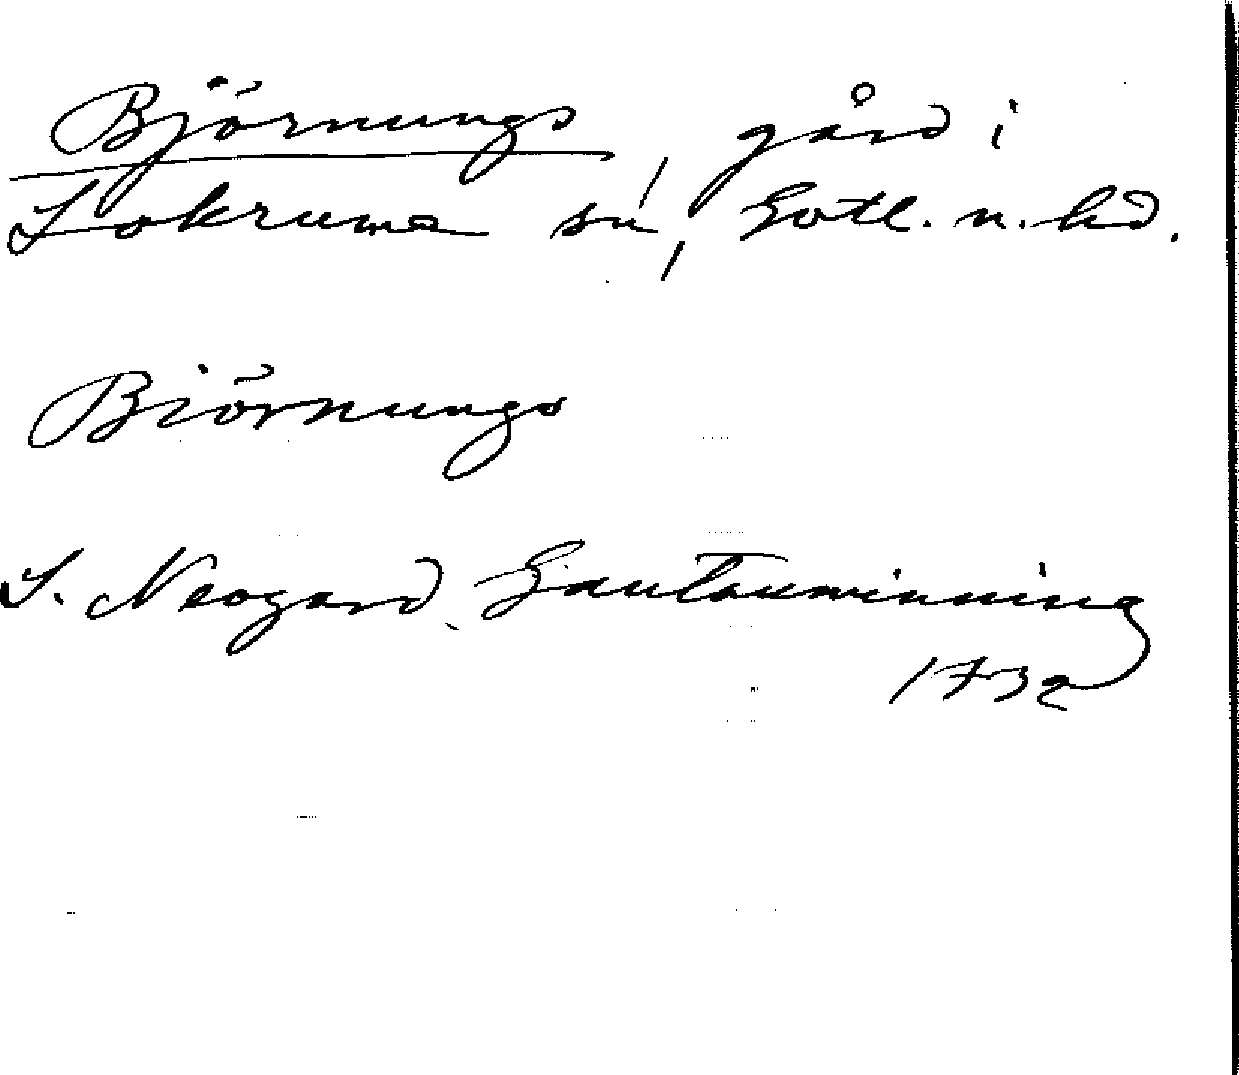 Björnungs, gård i
Lokrume sn, Gotl. n. hd.
Biörnungs
S. Neogard, Gautauminning
1732